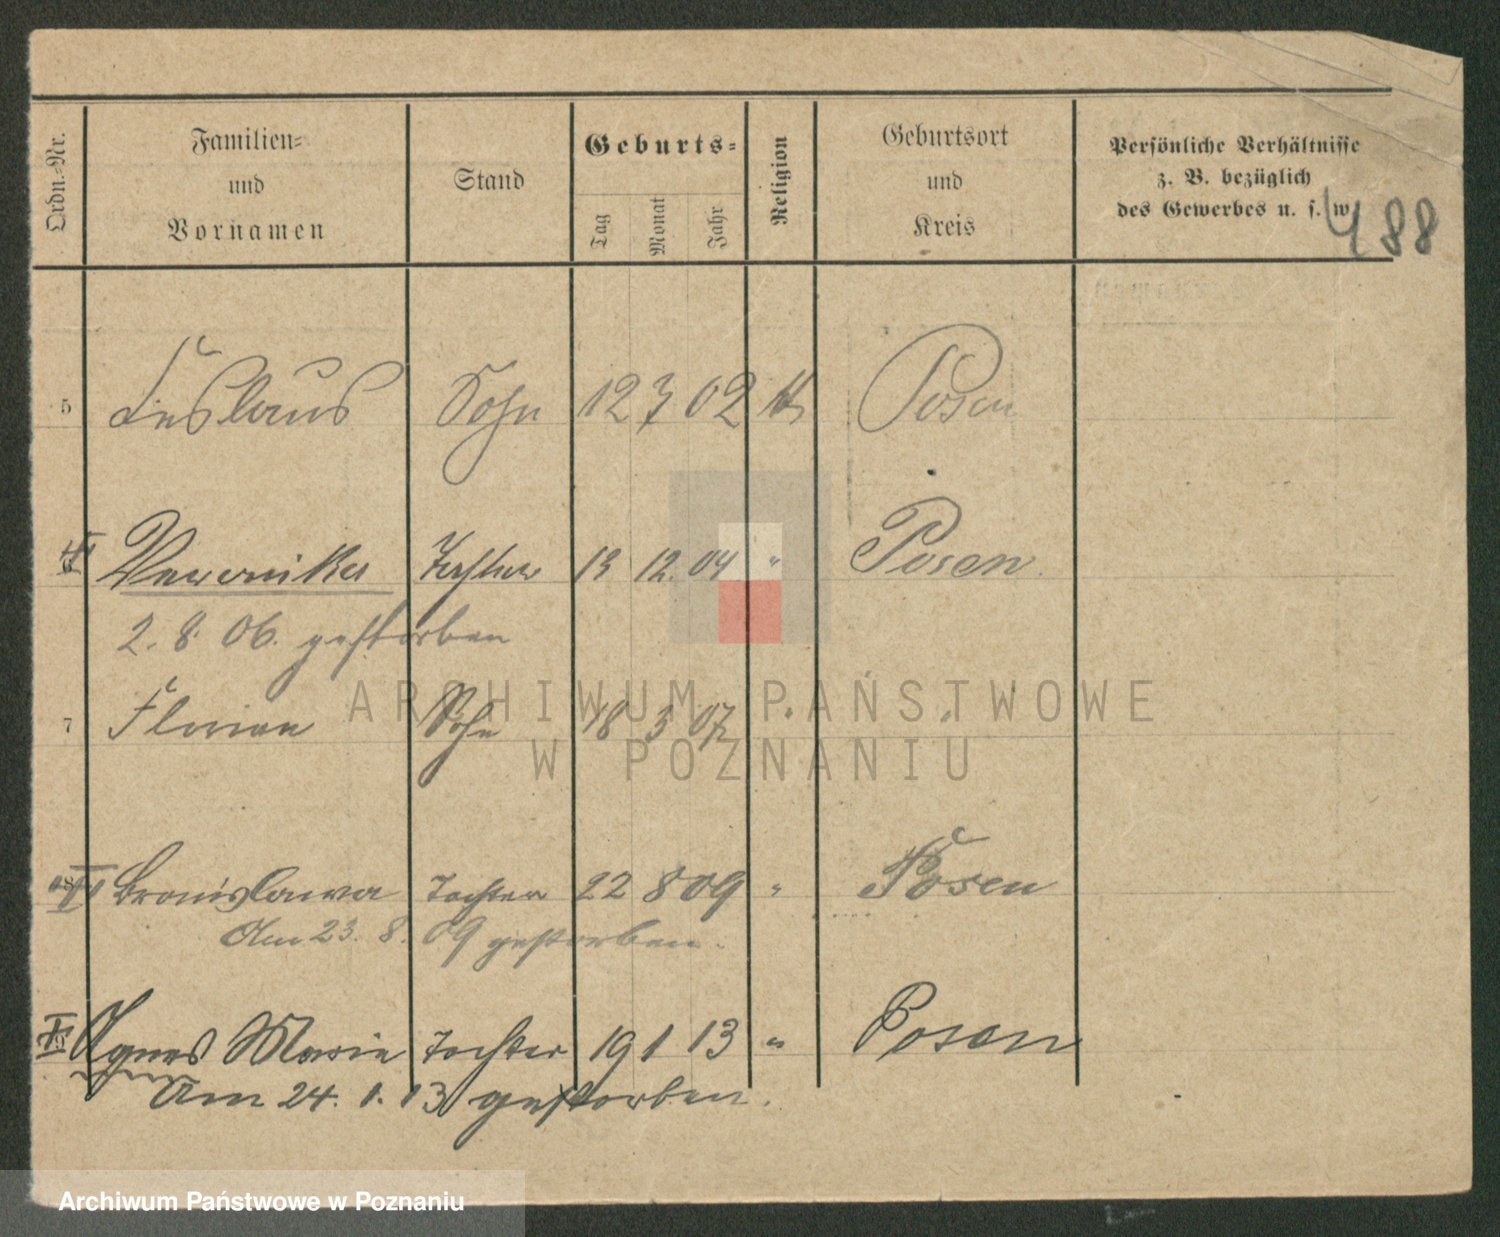 Ordn.-Nr.
Familien-
und
Vornamen
Stand
Geburts-
Tag
Monat
Jahr
Religion
Geburtsort
und
Kreis
Persönliche Verhältnisse
z. B. bezüglich
des Gewerbes u. s. w.
488
5 Sohn 12 3 02 Posen
Veronika Tochter 13 12. 04 " Posen.
2. 8. 06. gestorben
7 Florian Sohn 18 3 07 " "
Bronislawa Tochter 22 8 09 " Posen
Am 23. 8. 09 gestorben.
Agnes Marie Tochter 19 1 13 " Posen
Am 24. 1. 13 gestorben.
ARCHIWUM PAŃSTWOWE
W POZNANIU
Archiwum Państwowe w Poznaniu